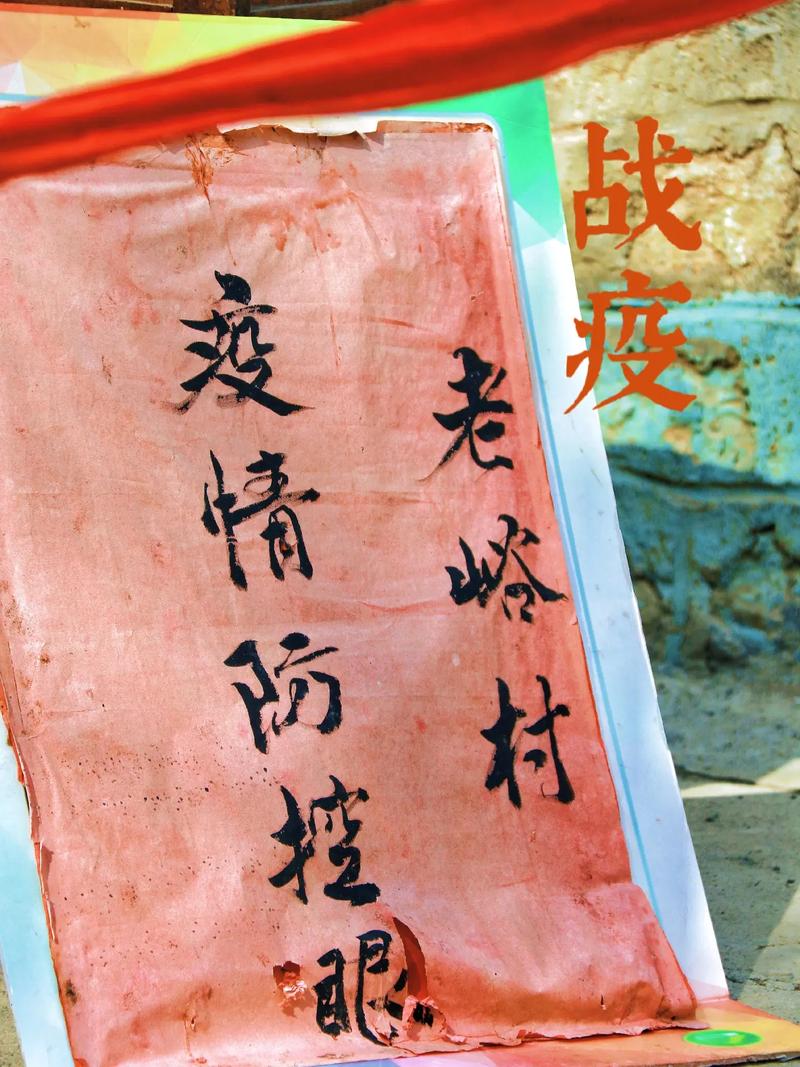 战疫
老峪村
疫情防控眼